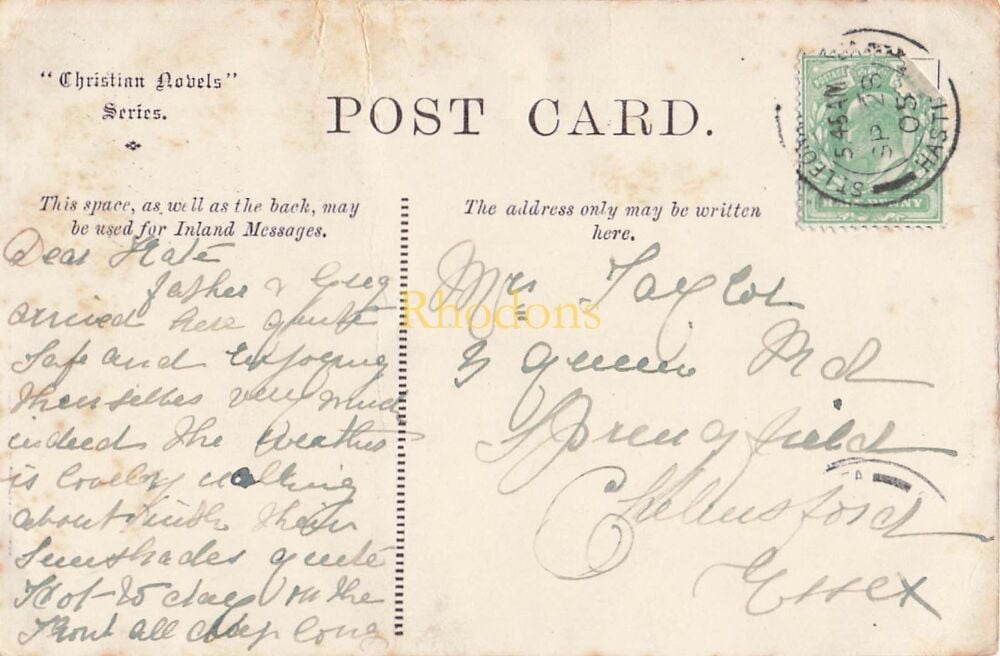 "Christian Novels"
Series.
POST CARD.
This space, as well as the back, may
be used for Inland Messages.
The address only may be written
here.
5.45 AM
SP 28
05
ST LEONA
HASTI
HALF PENNY
Dear Kate
father &
arrived here quite
safe and enjoying
themselves very much
indeed the weather
is lovely walking
about with their
Sunshades quite
Hot to day on the
front all day long
Mrs Taylor
Queen Rd
Springfield
Chelmsford
Essex
Rhodons